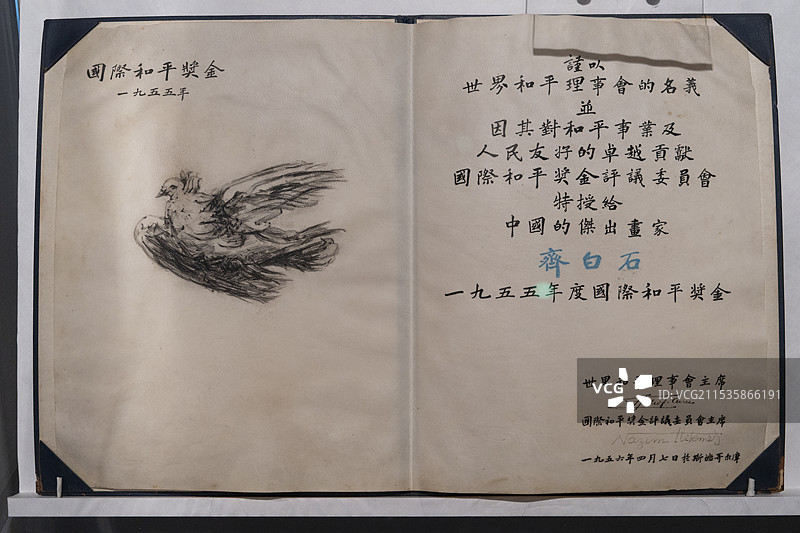 國際和平獎金
一九五五年
謹以
世界和平理事會的名義
並
因其對和平事業及
人民友好的卓越貢獻
國際和平獎金評議委員會
特授給
中國的傑出畫家
齊白石
一九五五年度國際和平獎金
世界和平理事會主席
國際和平獎金評議委員會主席
Nazim Hikmet
一九五六年四月七日於斯德哥爾摩
VCG
视觉中国
ID:VCG211535866191